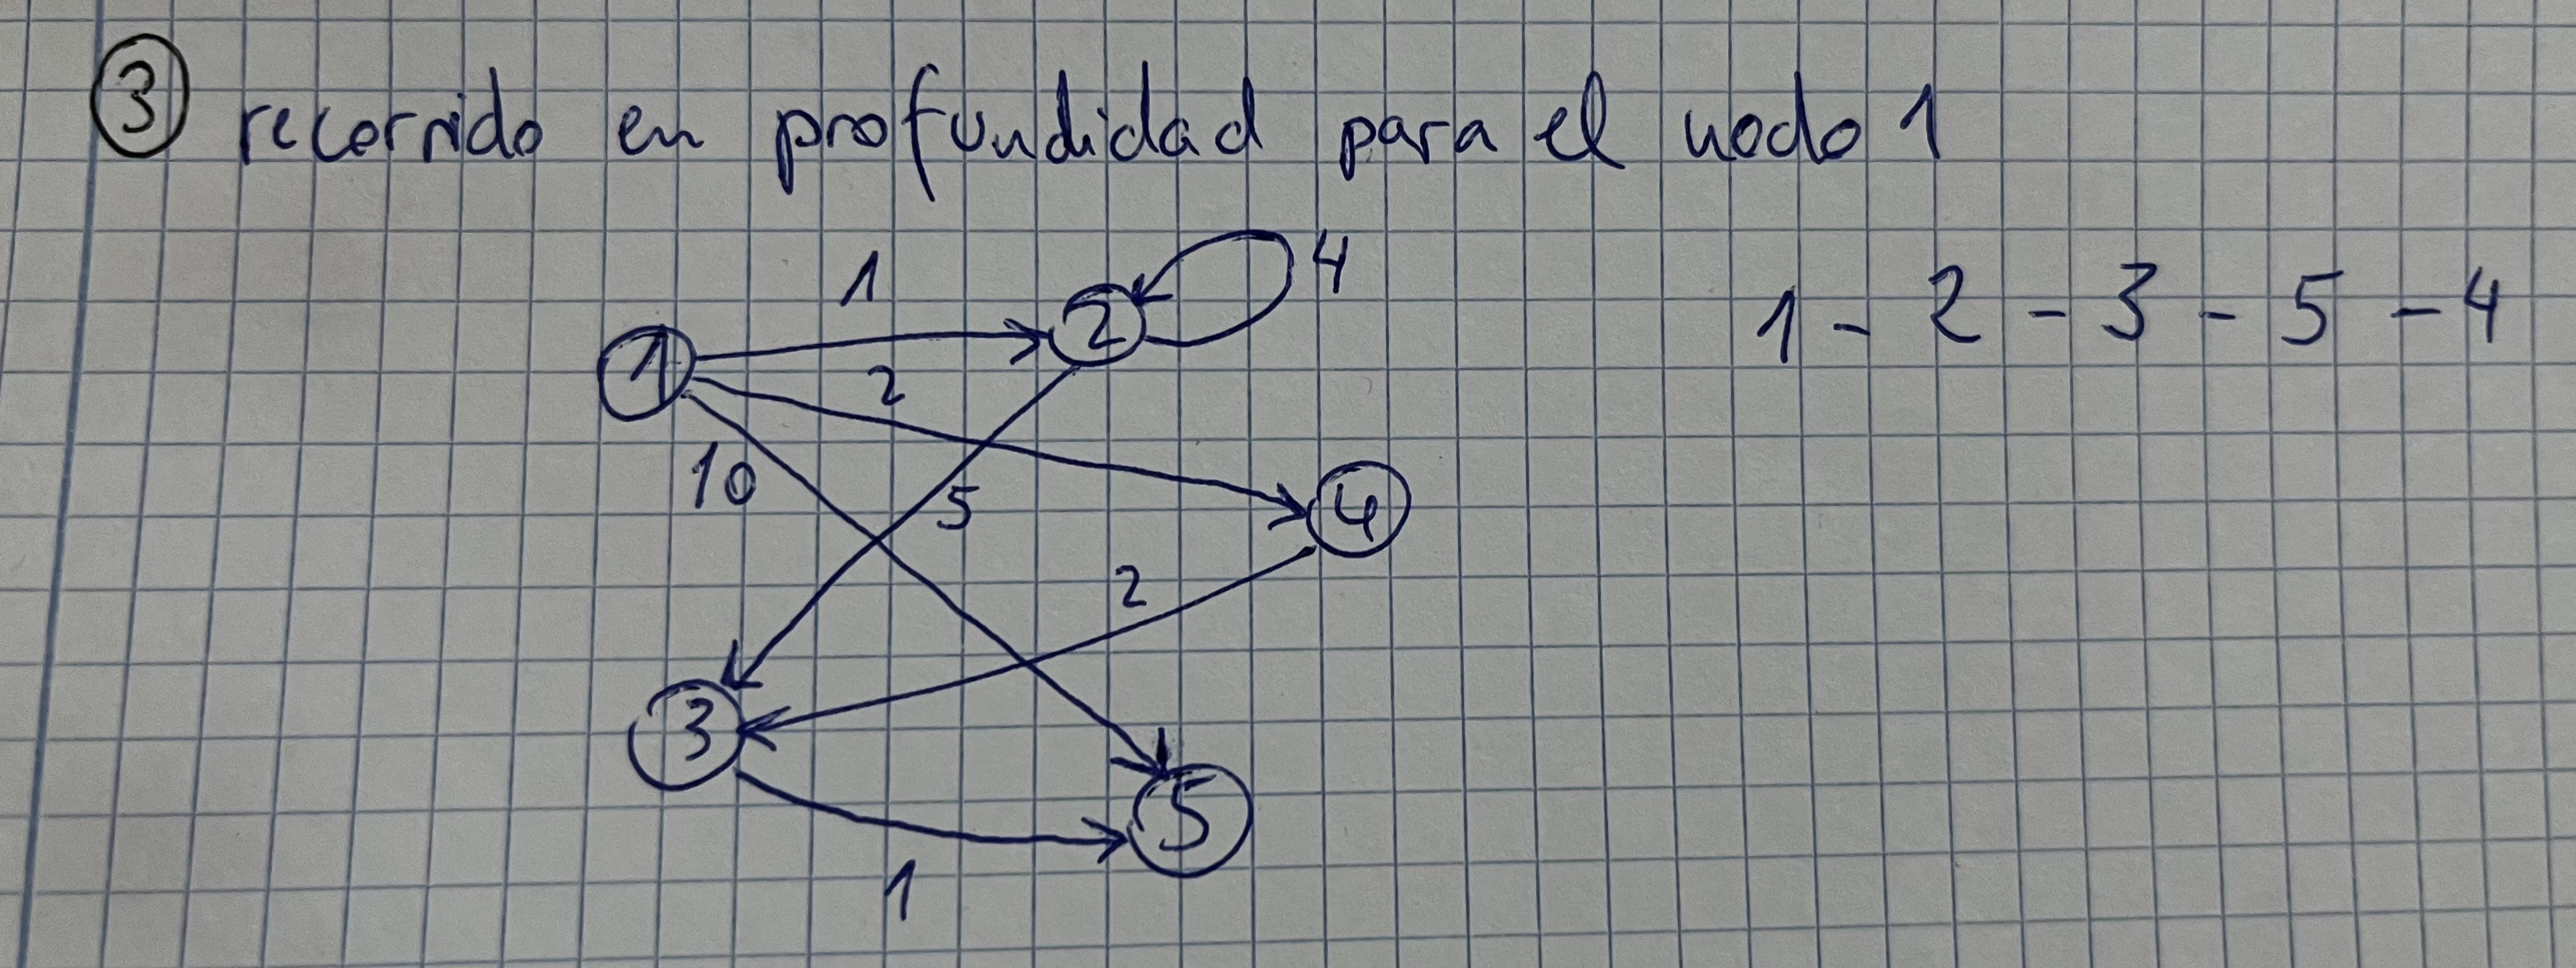 3 recorrido en profundidad para el nodo 1
1 2 4
1 2 1 - 2 - 3 - 5 - 4
10 5 4
2
3 5
1